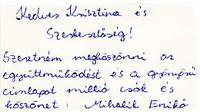 Kedves Krisztina és
Szerkesztőség!
Szeretném megköszönni az
együttműködést és a gyönyörű
címlapot millió csók és
köszönet: Mihalik Enikő